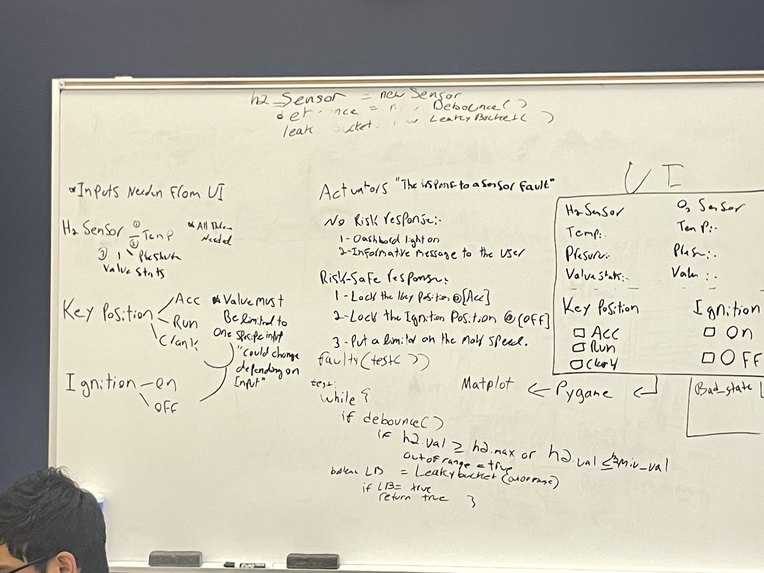 h2_Sensor = new Sensor
= new Debounce()
leak new LeakyBucket()
*Inputs Needed From UI
H2 Sensor ① Temp
② Pressure
③ Value Stats
* All Three Needed
Key Position
Acc
Run
Crank
* Value must
Be limited to
one specific input
"could change
depending on
Input"
Ignition
on
OFF
Actuators "The response to a sensor fault"
No Risk response:-
1- Dashboard light on
2- Informative message to the user
Risk-Safe response:
1- Lock the Key Position @[Acc]
2- Lock the Ignition Position @[OFF]
3- Put a limiter on the motor speed.
faulty(test())
test:
while {
if debounce()
if h2.val ≥ h2.max or h2.val ≤ h2Min_val
out of range = true
boolean LB = Leakybucket(outofrange)
if LB = true
return true }
UI
H2 Sensor
Temp:.
Pressure:.
Value stats:.
O2 Sensor
Temp:.
Press:.
Value :.
Key Position
Acc
Run
Crank
Ignition
On
OFF
Matplot ← Pygame ←
Bad_state